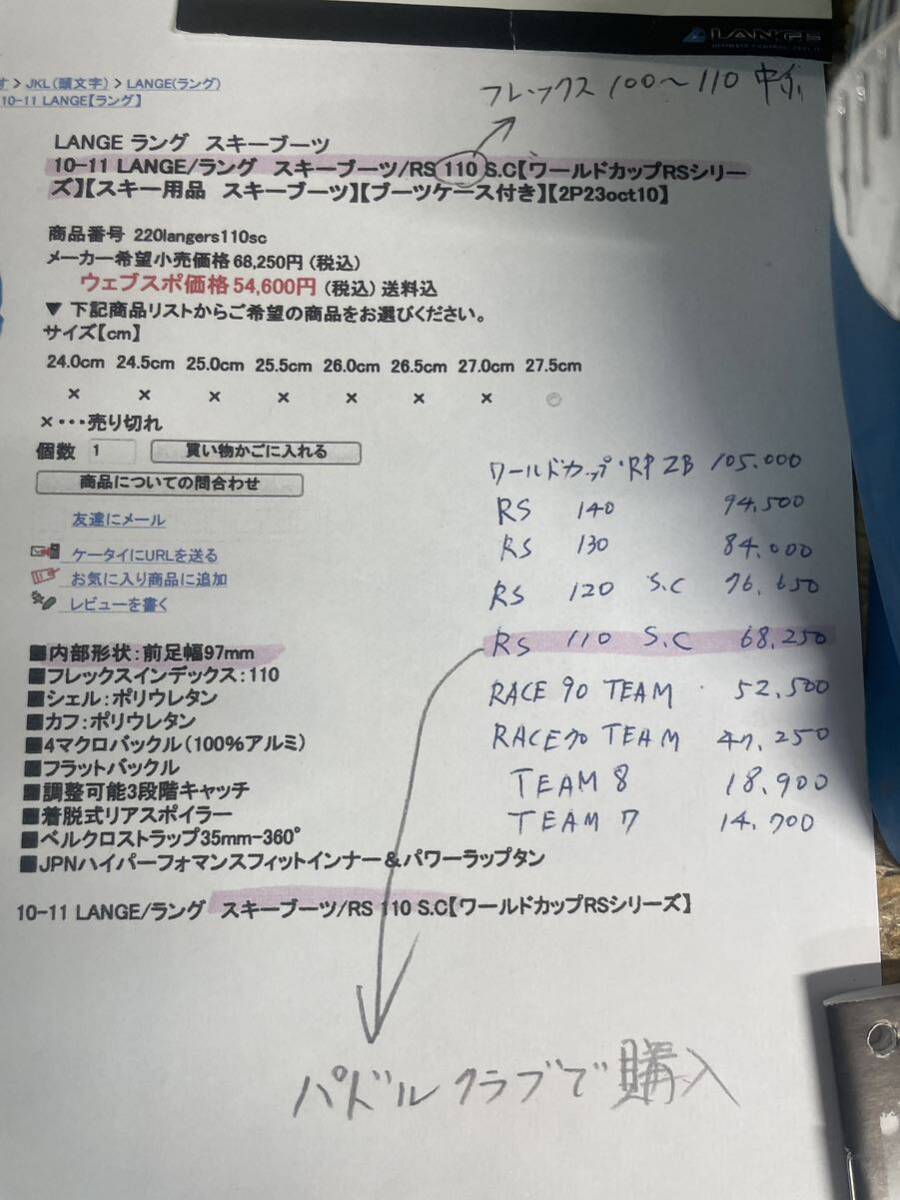 LANGE
す > JKL(頭文字) > LANGE(ラング)
10-11 LANGE【ラング】
フレックス 100～110 中級
LANGE ラング スキーブーツ
10-11 LANGE/ラング スキーブーツ/RS 110 S.C【ワールドカップRSシリー
ズ】【スキー用品 スキーブーツ】【ブーツケース付き】【2P23oct10】
商品番号 220langers110sc
メーカー希望小売価格 68,250円 (税込)
ウェブスポ価格 54,600円 (税込) 送料込
▼ 下記商品リストからご希望の商品をお選びください。
サイズ【cm】
24.0cm 24.5cm 25.0cm 25.5cm 26.0cm 26.5cm 27.0cm 27.5cm
× × × × × × × ◎
×・・・売り切れ
個数 1 買い物かごに入れる
商品についての問合わせ
友達にメール
ケータイにURLを送る
お気に入り商品に追加
レビューを書く
ワールドカップ・RP ZB 105.000
RS 140 94,500
RS 130 84.000
RS 120 S.C 76.650
RS 110 S.C 68.250
RACE 90 TEAM 52,500
RACE70 TEAM 47,250
TEAM 8 18,900
TEAM 7 14.700
■内部形状：前足幅97mm
■フレックスインデックス：110
■シェル：ポリウレタン
■カフ：ポリウレタン
■4マクロバックル（100%アルミ）
■フラットバックル
■調整可能3段階キャッチ
■着脱式リアスポイラー
■ベルクロストラップ35mm-360°
■JPNハイパーフォマンスフィットインナー＆パワーラップタン
10-11 LANGE/ラング スキーブーツ/RS 110 S.C【ワールドカップRSシリーズ】
パドルクラブで購入